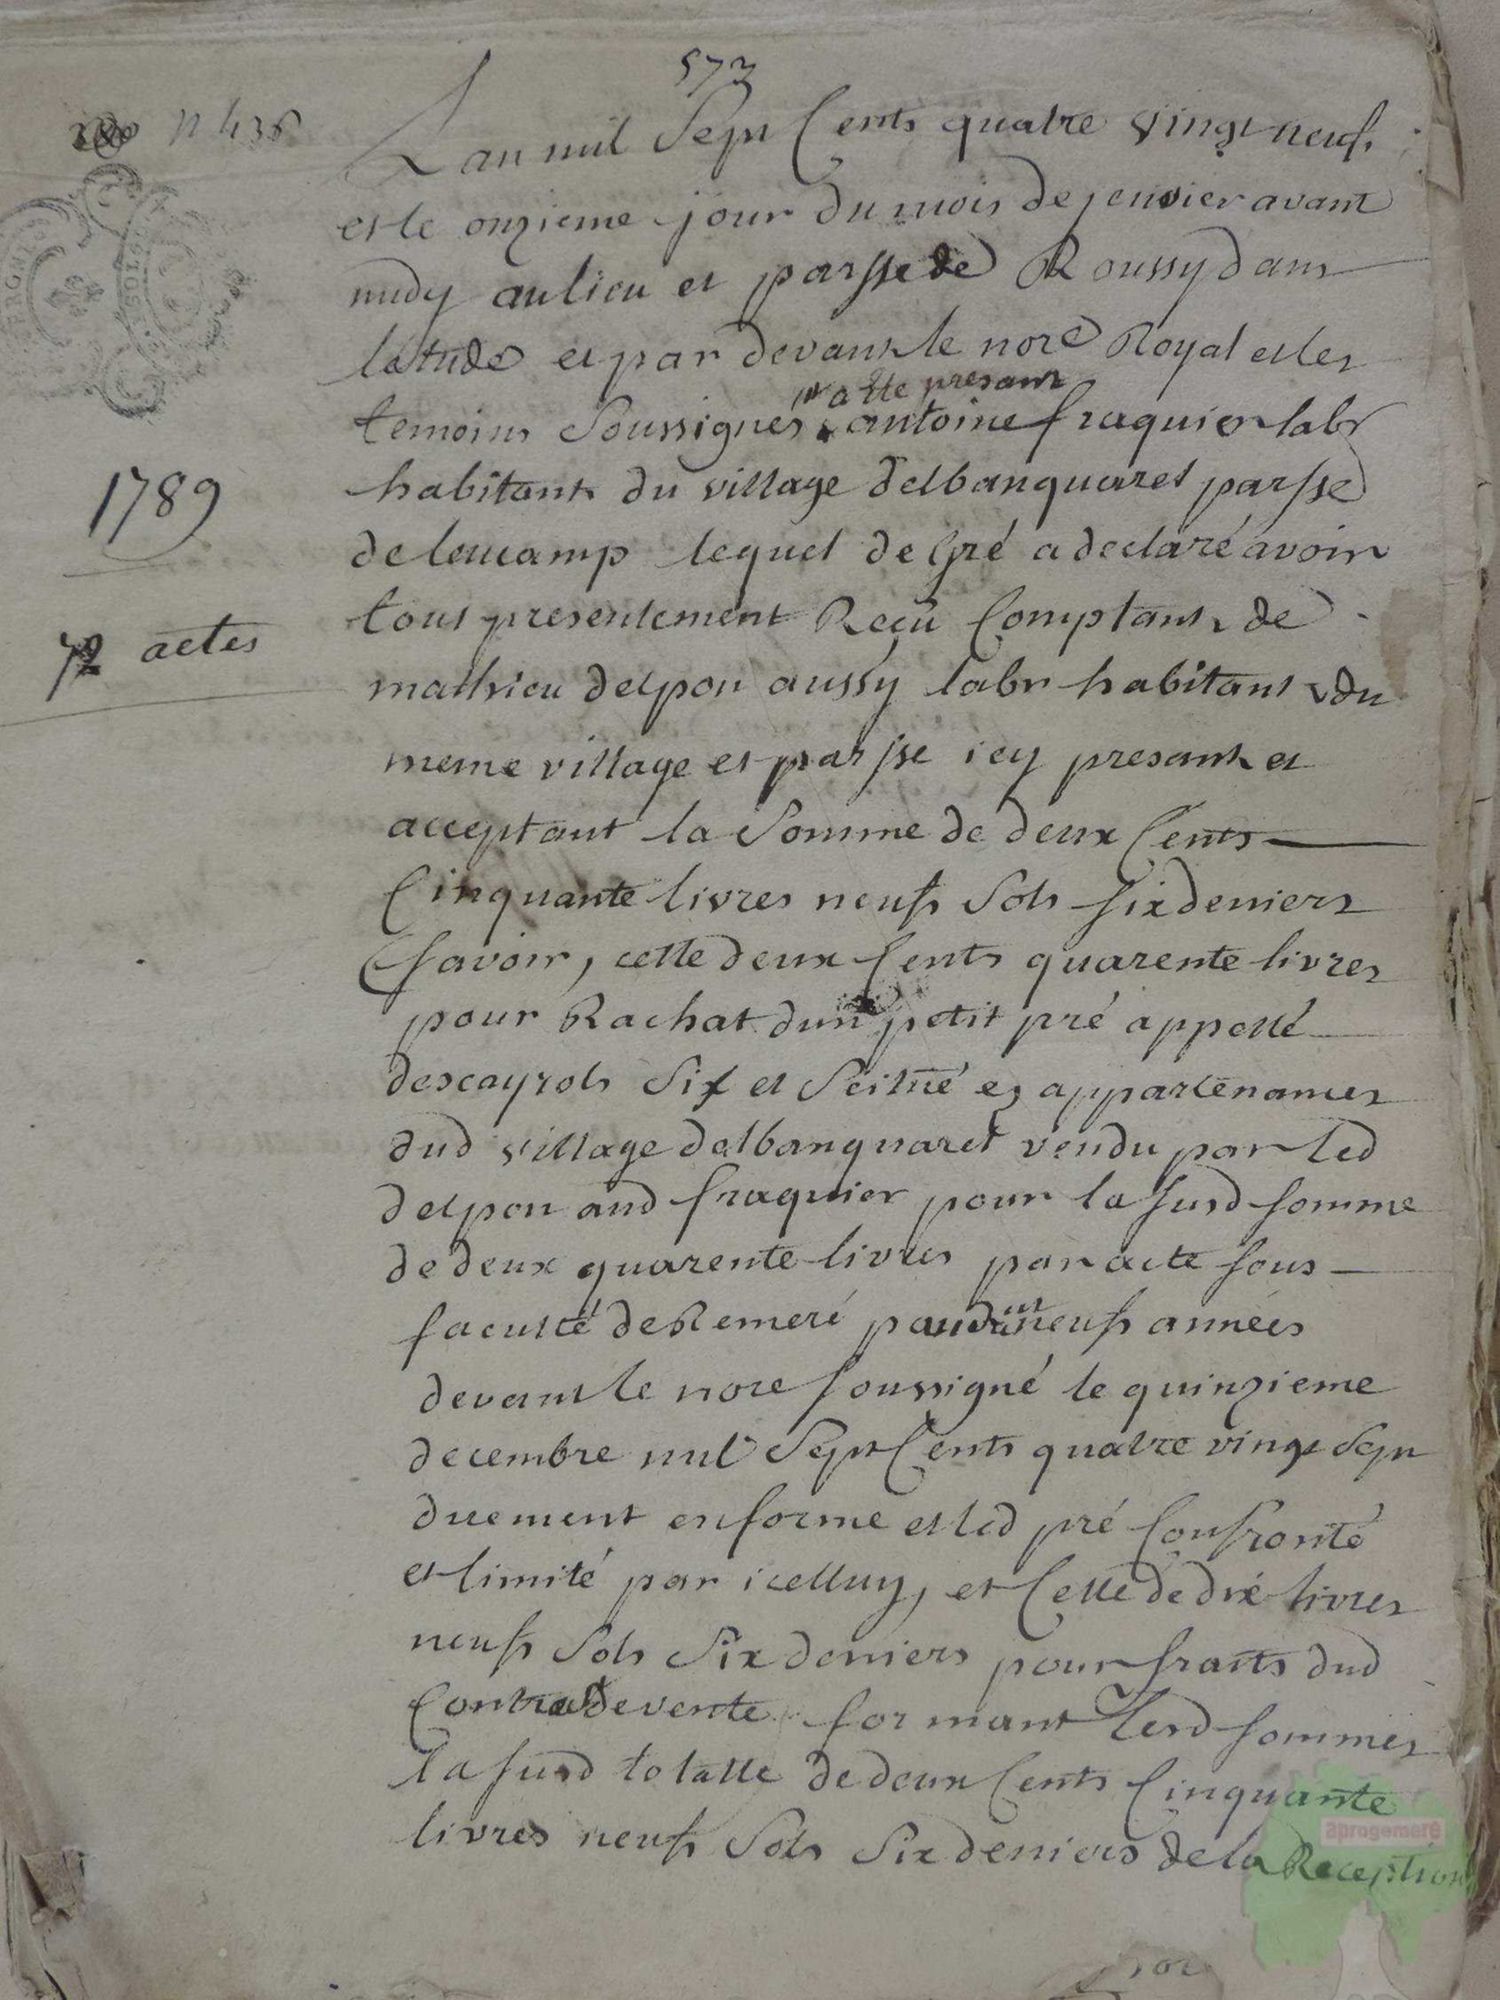 573
n 436
L'an mil Sept Cents quatre vingt neufs
et le onzieme jour du mois de jenvier avant
midy au lieu et parsse de Roussy dans
letude et par devant le nore Royal et les
a ete presant
temoins Soussignes antoine fraquier labr
1789
habitant du village delbanquaret parsse
de leucamp lequel de Gré a declaré avoir
tout presentement Reçû Comptant de
72 actes
mathieu delpon aussy labr habitant du
meme village et parsse icy presant et
acceptant la Somme de deux Cents
Cinquante livres neufs Sols six deniers
savoir, celle deux Cents quarente livres
pour Rachat dun petit pré appellé
descayrols Six et Scitué es appartenances
dud village delbanquaret vendu par led
delpon aud fraquier pour la susd somme
de deux quarente livres par acte sous
faculté de Remeré pandant neufs années
devant le nore soussigné le quinzieme
decembre mil Sept Cents quatre vingt Sept
duement en forme et led pré Confronté
et limité par icelluy, et Celle de dix livres
neufs Sols Six deniers pour fraits dud
Contrat de vente formant lesd sommes
la susd totalle de deux Cents Cinquante
livres neufs Sols Six deniers de la Reception
aprogemere